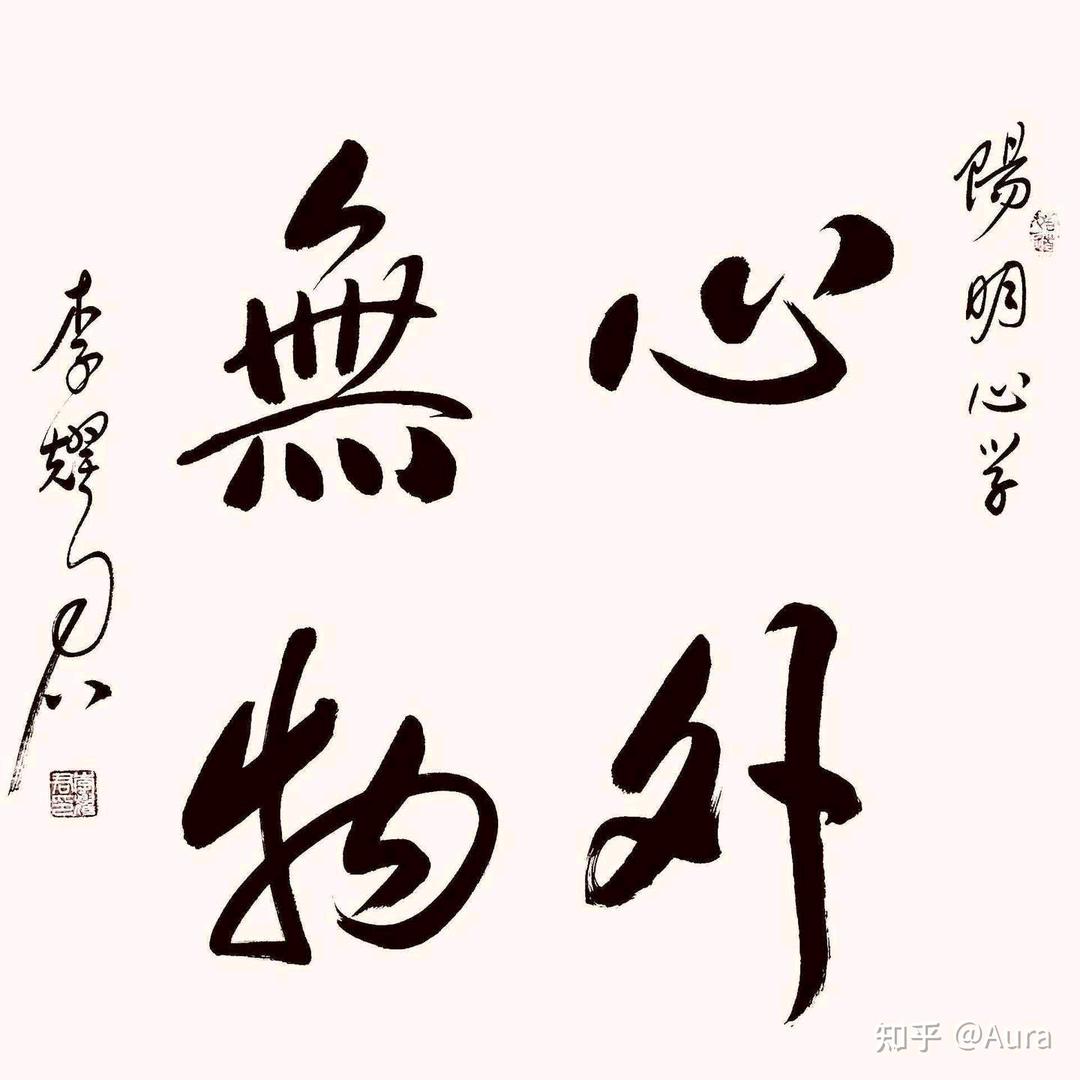 陽明心学
心外
無物
李耀君
知乎 @Aura